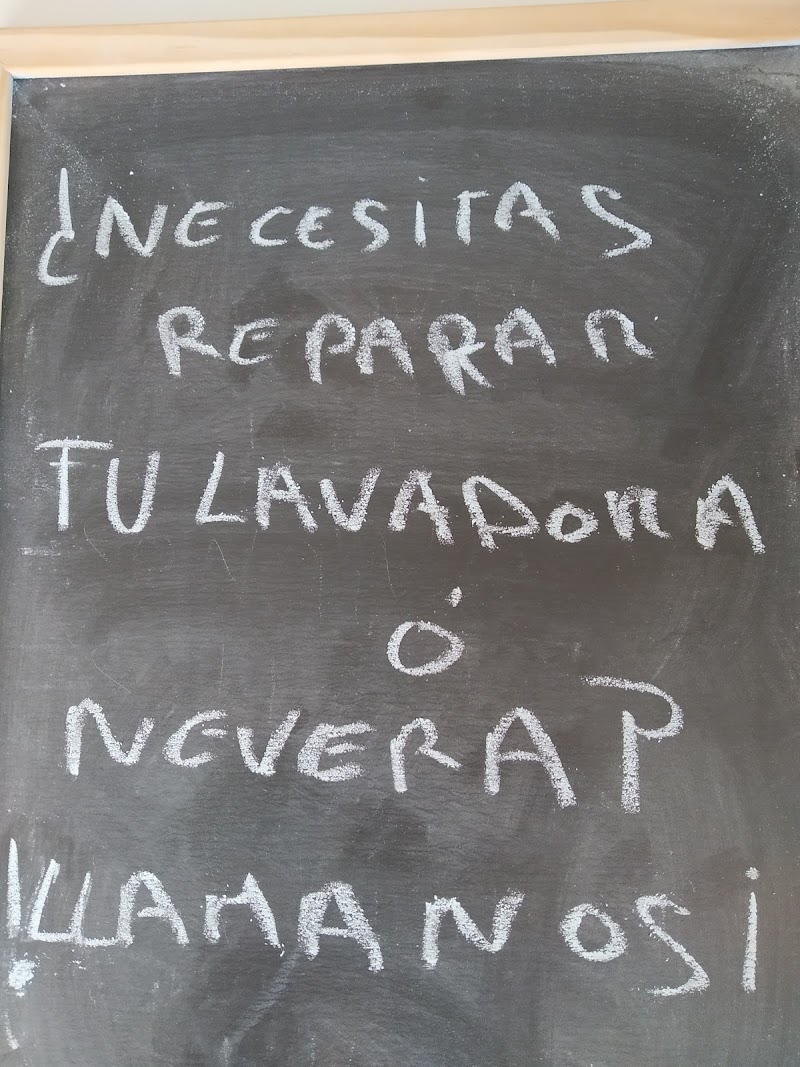 ¿NECESITAS
REPARAR
TU LAVADORA
Ó
NEVERA?
!LLAMANOS¡